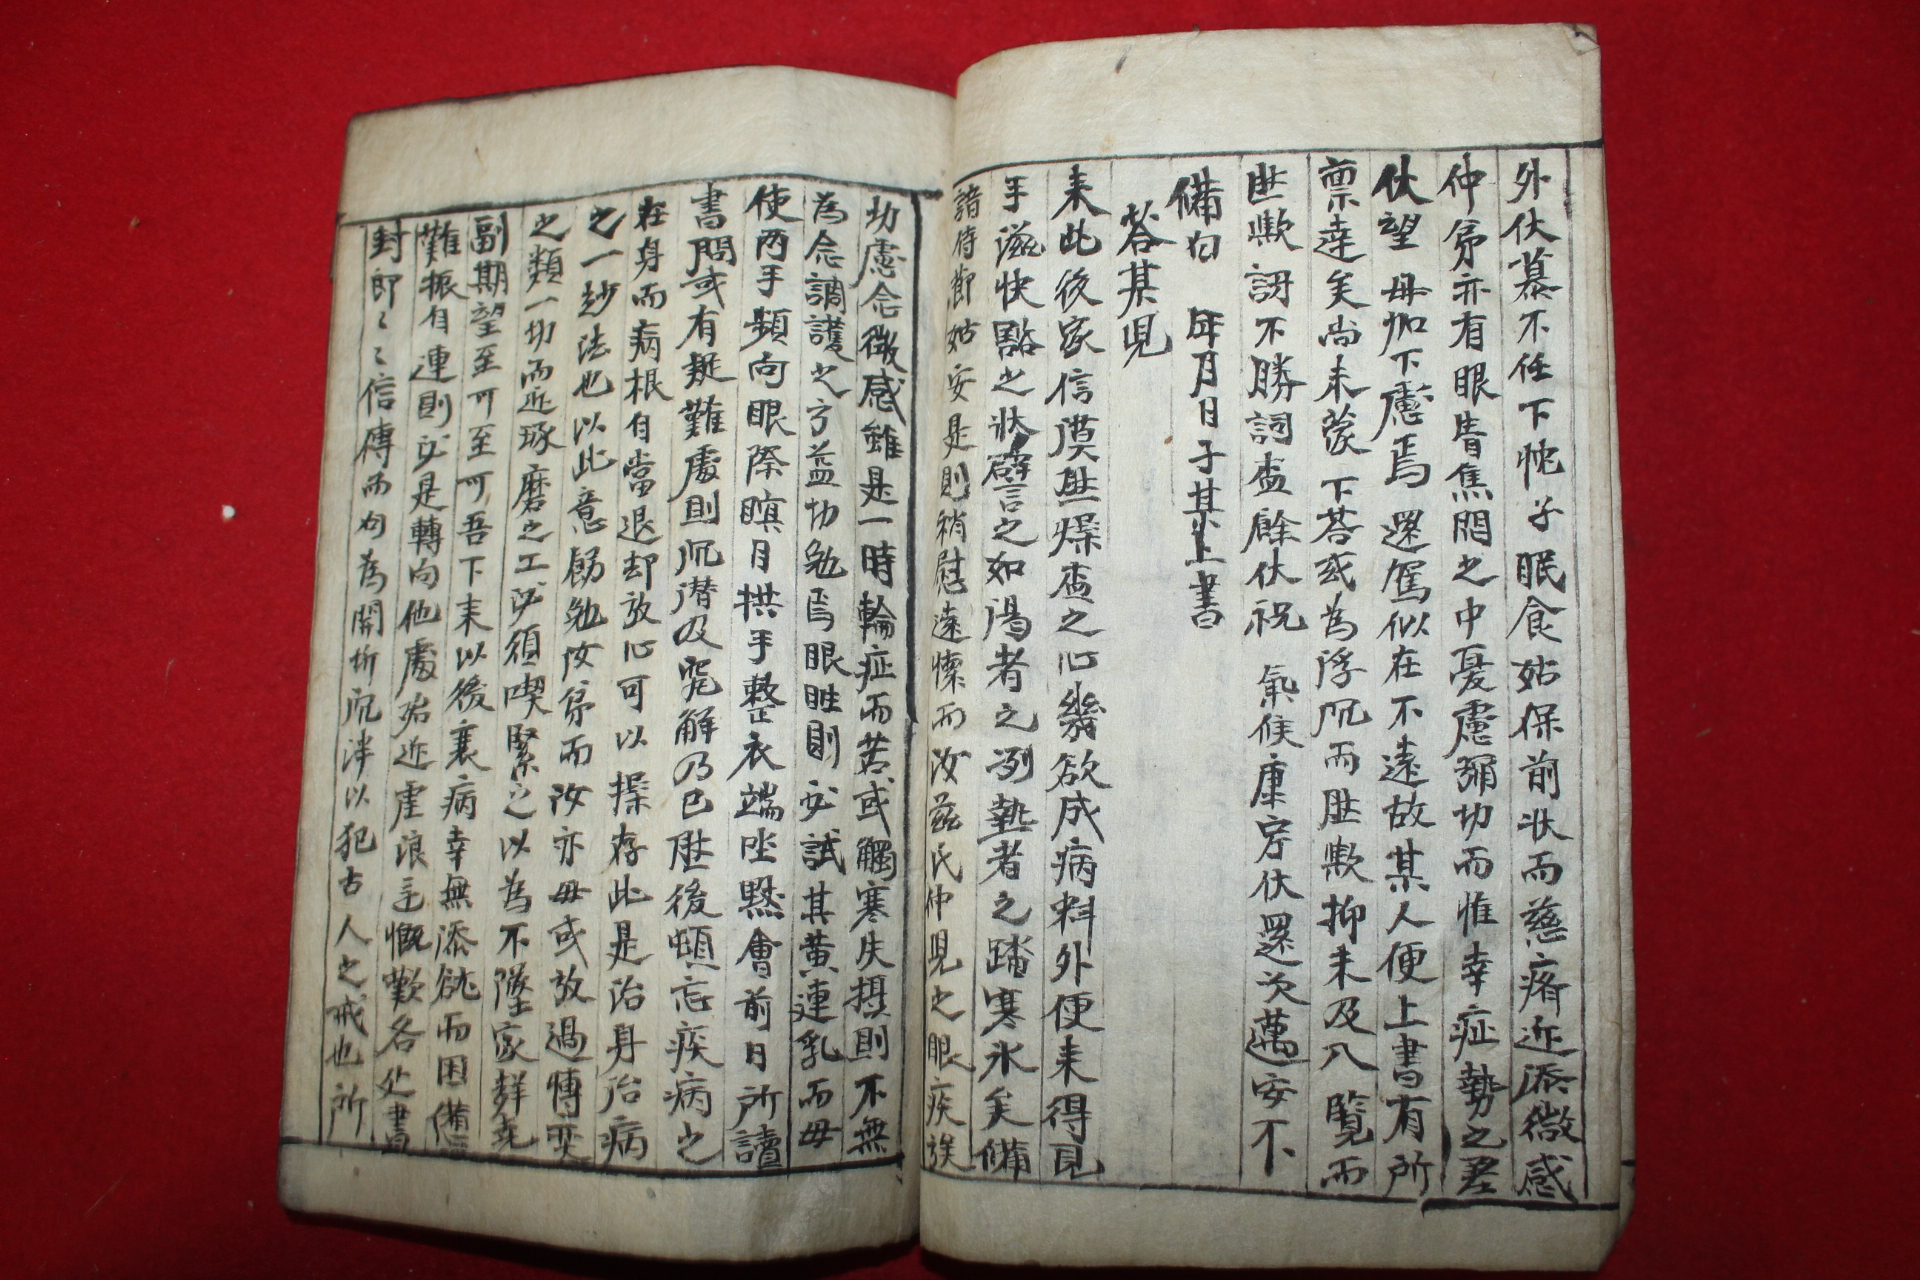 外伏慕不任下忱子眠食姑保前狀而慈瘠近添微感
仲弟亦有眼眚焦悶之中憂慮彌切而惟幸症勢之差
伏望 毋加下慮焉 還駕似在不遠故某人便上書有所
禀達矣尚未蒙 下答或為浮沉而然歟抑未及入 覽而
然歟 詡不勝詞盡餘伏祝 氣候康寧伏還次萬安不
備白 年月日子某上書
答某児
来此後家信漠然燥盃之心幾欲成病料外便来得見
手滋快豁之狀譬之如渴者之冽熱者之踏寒氷矣備
諳侍節姑安是則稍慰遠愫而汝茲氏仲児之眼疾族
切慮念微感雖是一時輪症而若或觸寒失摂則不無
為念調護之方益切勉焉眼眚則必試其黄連乳而毋
使両手頻向眼際瞑目拱手整衣端坐黙會前日所讀
書間或有疑難處則沉潛及究解乃已然後頓忘疾病之
在身而病根自當退却放心可以操存此是治身治病
之一妙法也以此意勗勉汝弟而汝亦毋或放過慱奕
之類一切而近琢磨之工必須喫緊之以為不墜家聲克
副期望至可至可吾下来以後衰病幸無添就而因備
難振自連則必是轉向他處殆近虗浪至慨歎各处書
封郎ミミ信傳而勿為開坼沉滯以犯古人之戒也所